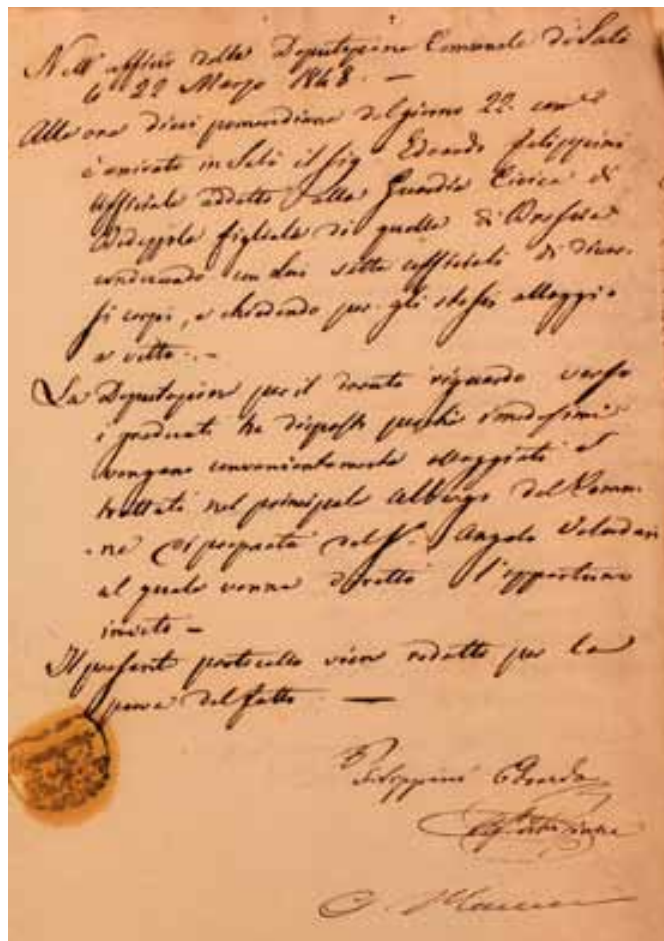 Nell' officio della Deputazione Comunale di Salò
li 22 Marzo 1848. —
Alle ore dieci pomeridiane del giorno 22. corr.e
è arrivato in Salò il Sig. Edoardo Filippini
Ufficiale addetto alla Guardia Civica di
figliale di quella di Brescia
conducendo con lui sette ufficiali di diver-
si corpi, e chiedendo per gli stessi alloggio
e vitto. —
La Deputazione per il dovuto riguardo verso
i graduati ha disposto perchè i medesimi
vengano convenientemente alloggiati e
trattati nel principale Albergo del Comu-
ne di proprietà del S.r Angelo
al quale venne diretto l'opportuno
invito —
Il presente protocollo vien redatto per la
prova del fatto —
Filippini Edoardo